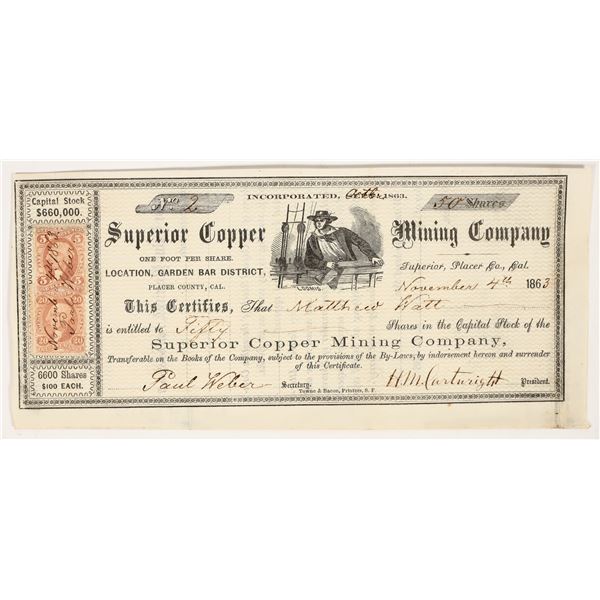 Capital Stock
$660,000.
6600 Shares
$100 EACH.
No. 2
INCORPORATED, Octbr. 1863.
50 Shares
Superior Copper Mining Company
ONE FOOT PER SHARE.
LOCATION, GARDEN BAR DISTRICT,
PLACER COUNTY, CAL.
Superior, Placer Co., Cal.
November 4th 1863
This Certifies, That Matthew Watt
is entitled to Fifty Shares in the Capital Stock of the
Superior Copper Mining Company,
Transferable on the Books of the Company, subject to the provisions of the By-Laws, by indorsement hereon and surrender
of this Certificate.
Paul Weber Secretary.
H.M. Cartwright President.
Towne & Bacon, Printers, S. F.